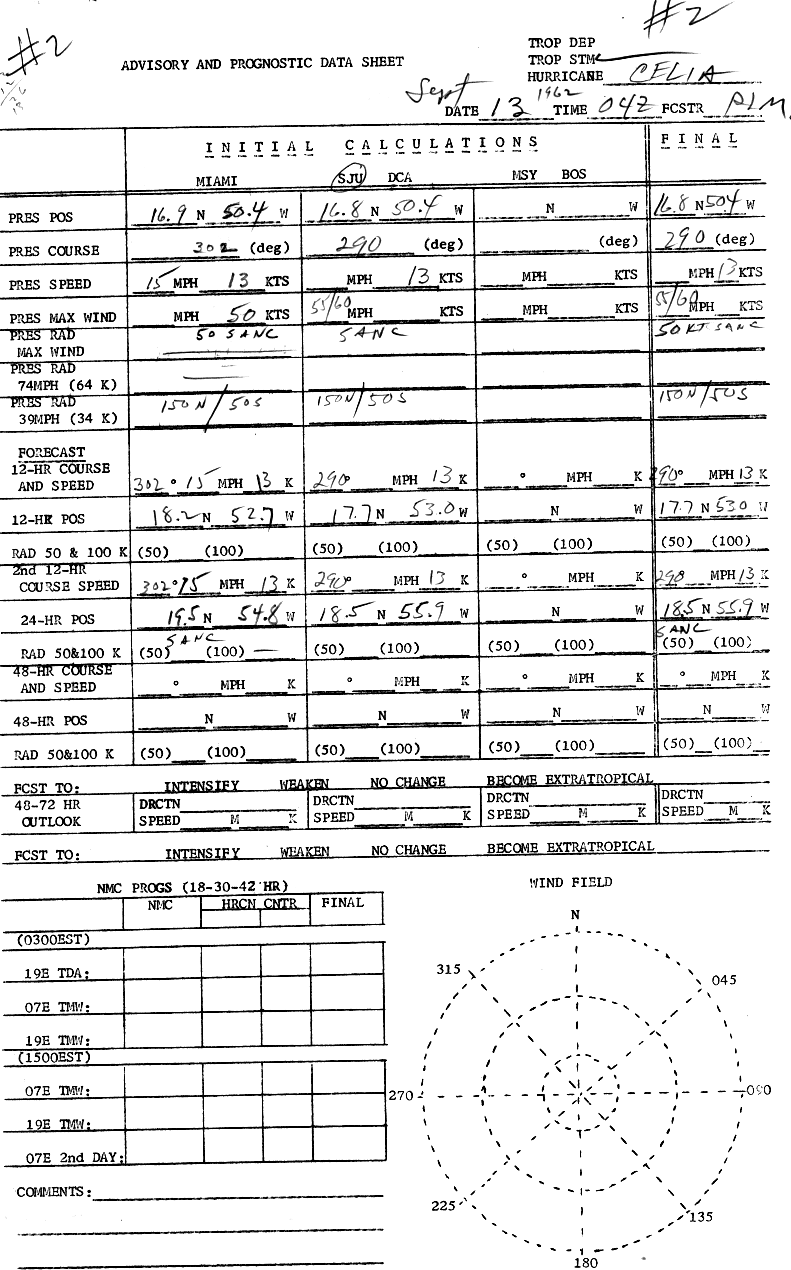 #2
#2
ADVISORY AND PROGNOSTIC DATA SHEET
TROP DEP
TROP STM
HURRICANE CELIA
Sept 1962
DATE 13 TIME 04Z FCSTR
INITIAL CALCULATIONS FINAL
MIAMI SJU DCA MSY BOS
PRES POS 16.9 N 50.4 W 16.8 N 50.4 W N W 16.8 N 504 W
PRES COURSE 302 (deg) 290 (deg) (deg) 290 (deg)
PRES SPEED 15 MPH 13 KTS MPH 13 KTS MPH KTS MPH 13 KTS
PRES MAX WIND MPH 50 KTS 55/60 MPH KTS MPH KTS 55/60 MPH KTS
PRES RAD 50 SANC SANC 50 KT SANC
MAX WIND
PRES RAD
74MPH (64 K)
PRES RAD 150N/50S 150N/50S 150N/50S
39MPH (34 K)
FORECAST
12-HR COURSE
AND SPEED 302 ° 15 MPH 13 K 290° MPH 13 K ° MPH K 290° MPH 13 K
12-HR POS 18.2 N 52.7 W 17.7 N 53.0 W N W 17.7 N 530 W
RAD 50 & 100 K (50) (100) (50) (100) (50) (100) (50) (100)
2nd 12-HR
COURSE SPEED 302° 15 MPH 13 K 290° MPH 13 K ° MPH K 290 MPH 13 K
24-HR POS 19.5 N 54.8 W 18.5 N 55.9 W N W 18.5 N 55.9 W
SANC SANC
RAD 50&100 K (50) (100) — (50) (100) (50) (100) (50) (100)
48-HR COURSE
AND SPEED ° MPH K ° MPH K ° MPH K ° MPH K
48-HR POS N W N W N W N W
RAD 50&100 K (50) (100) (50) (100) (50) (100) (50) (100)
FCST TO: INTENSIFY WEAKEN NO CHANGE BECOME EXTRATROPICAL
48-72 HR DRCTN DRCTN DRCTN DRCTN
OUTLOOK SPEED M K SPEED M K SPEED M K SPEED M K
FCST TO: INTENSIFY WEAKEN NO CHANGE BECOME EXTRATROPICAL
NMC PROGS (18-30-42 HR)
NMC HRCN CNTR FINAL
(0300EST)
19E TDA:
07E TMW:
19E TMW:
(1500EST)
07E TMW:
19E TMW:
07E 2nd DAY:
COMMENTS:
WIND FIELD
N
315 045
270 090
225 135
180